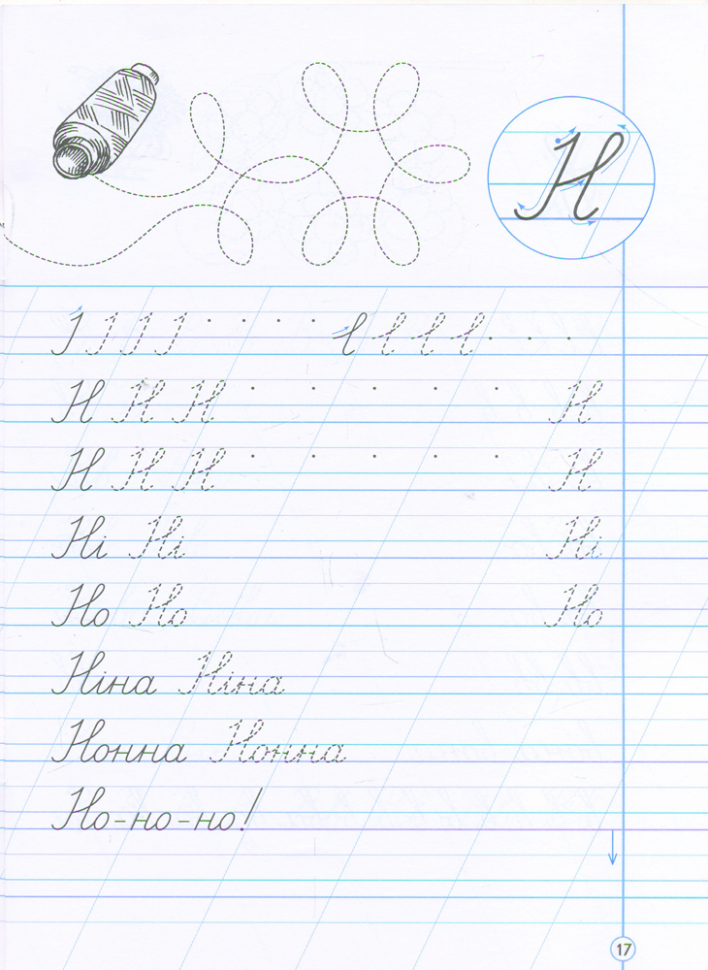 Н
Н Н Н Н
Н Н Н Н
Ні Ні Ні
Но Но Но
Ніна Ніна
Нонна Нонна
Но-но-но!
17